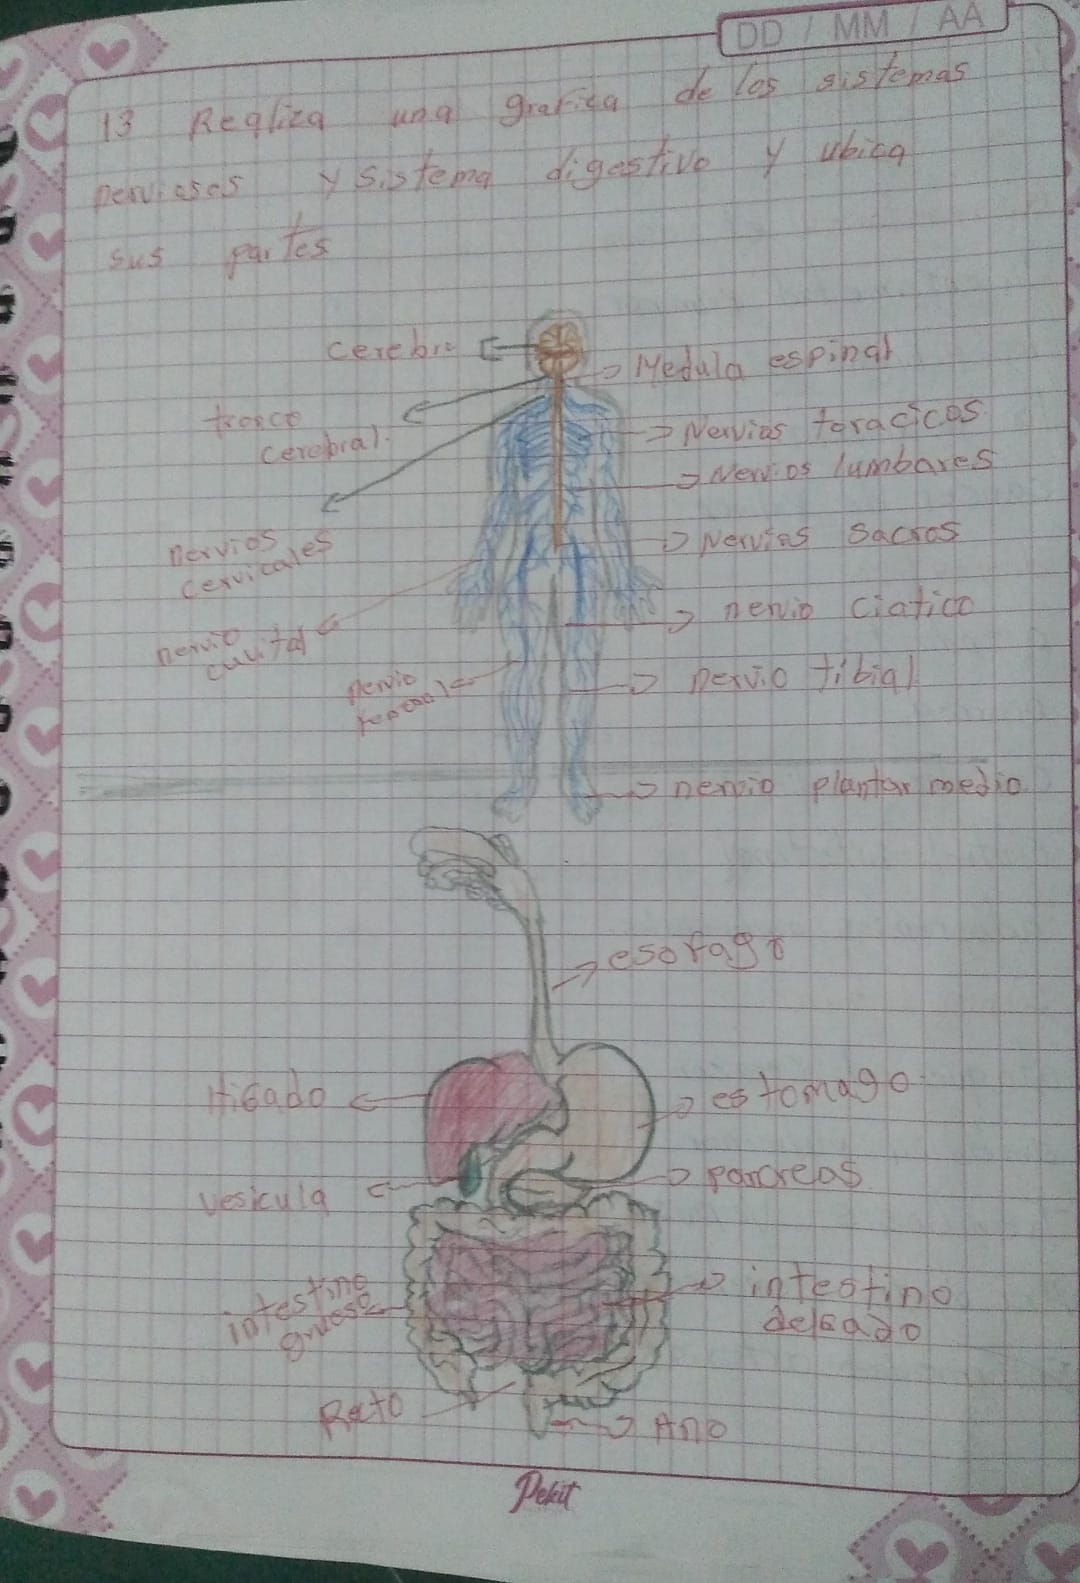 DD / MM / AA
13 Regliza una grafica de los sistemas
nerviosos y sistema digestivo y ubica
sus partes
cerebro
Medula espinal
tronco
cerebral.
Nervios toracicos
Nervios lumbares
nervios
cervicales
Nervios sacros
nervio ciatico
nervio
cuvital
nervio
nervio tibial
nervio plantar medio
esofago
Higado
estomago
pancreas
vesicula
intestino
grueso
intestino
delgado
Recto
Ano
Pekit